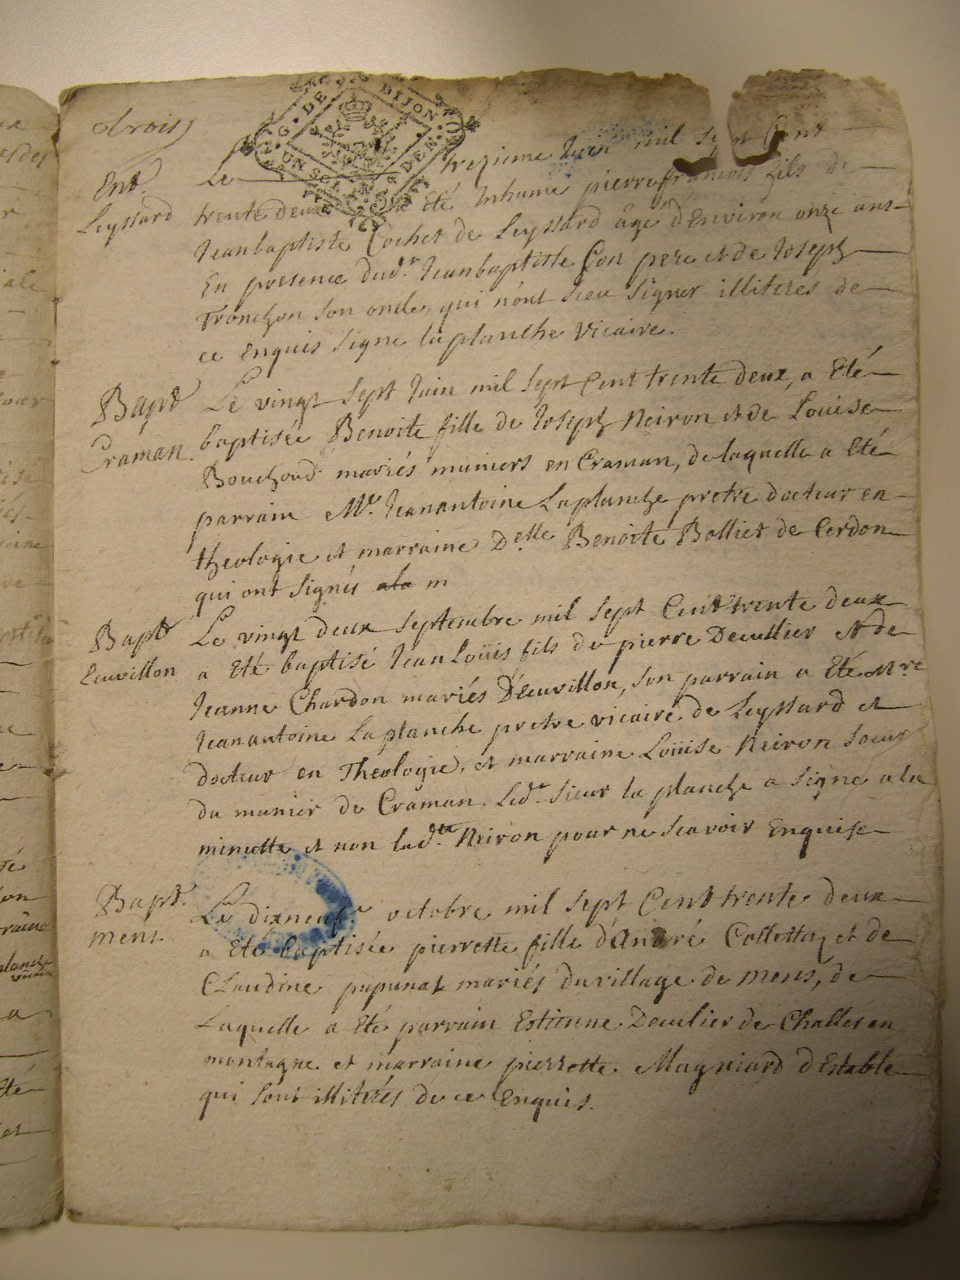 trois
G. DE DIJON
UN SOL
Ent.
Leyssard
Le trezieme Juin mil sept Cent
trente deux a Eté Inhumé pierre francois fils de
Jeanbaptiste Cochet de Leyssard âgé d'Environ onze ans
En presence dud.t Jeanbaptiste son pere et de Joseph
Tronchon son oncle, qui n'ont sceu signer illiteres de
ce enquis signe laplanche vicaire.
Bapt.
Craman.
Le vingt sept Juin mil sept Cent trente deux, a Eté
baptisée Benoite fille de Joseph Neiron et de Louise
Bouchoud mariés muniers en Craman, de laquelle a Eté
parrain Mr. Jeanantoine Laplanche pretre docteur en
theologie et marraine Delle Benoite Bolliet de Cerdon
qui ont signés ala m
Bapt
Leuvillon
Le vingt deux septembre mil sept Cent trente deux
a Eté baptisé Jean Loüis fils de pierre Decullier et de
Jeanne Chardon mariés D'Leuvillon, son parrain a Eté Mre
Jeanantoine Laplanche pretre vicaire de Leyssard et
docteur en Theologie, et marraine Loüise Neiron soeur
du munier de Craman. Led.t sieur la planche a signe a la
minutte et non lad.te Neiron pour ne scavoir Enquise
Bapt.
Mens.
Le dixneuf.e octobre mil sept Cent trente deux
a Eté baptisée pierrette fille d'André Collettaz et de
Claudine pupunat mariés du village de Mens, de
Laquelle a Eté parrain Estienne Deculier de Challes en
montagne et marraine pierrette Magniard d'Estable
qui sont illiterés de ce Enquis.